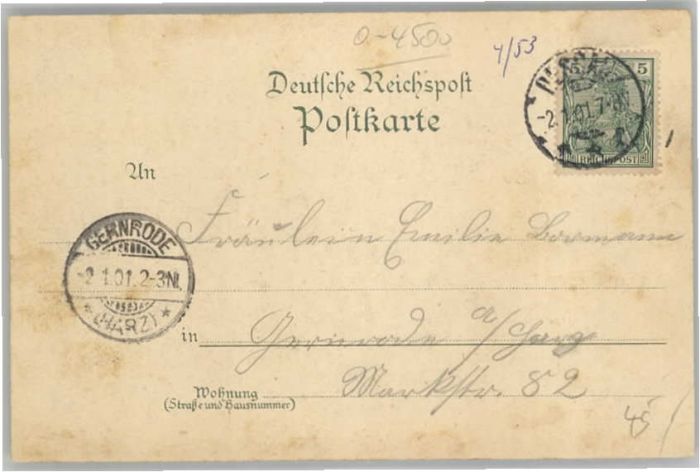 0-4500
4/53
Deutsche Reichspost
Postkarte
5 5
-2.1.01.7-8N
REICHSPOST
An
Fräulein Emilie Bormann
GERNRODE
-2.1.01.2-3N.
* (HARZ) *
in Gernrode a/Harz
Markstr. 82
Wohnung
(Straße und Hausnummer)
45